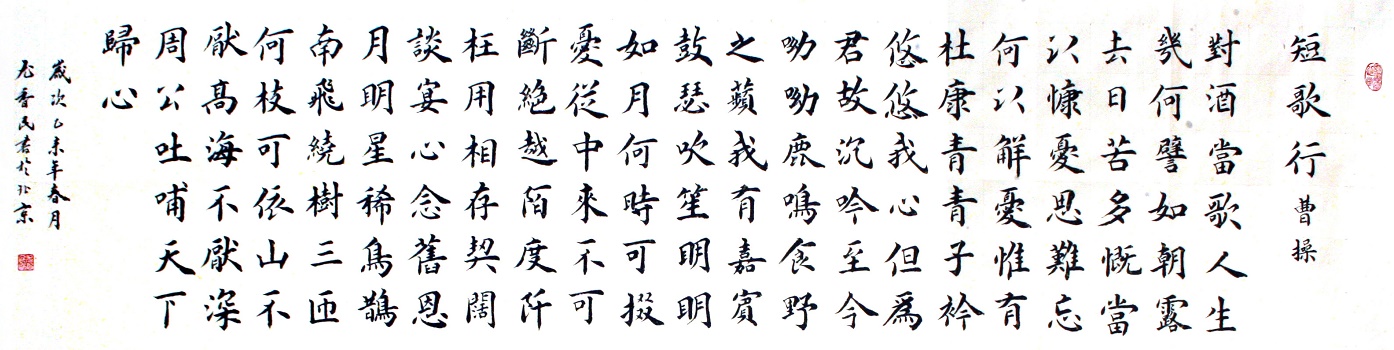 短歌行 曹操
對酒當歌人生
幾何譬如朝露
去日苦多慨當
以慷憂思難忘
何以解憂惟有
杜康青青子衿
悠悠我心但爲
君故沉吟至今
呦呦鹿鳴食野
之蘋我有嘉賓
鼓瑟吹笙明明
如月何時可掇
憂從中來不可
斷絕越陌度阡
枉用相存契闊
談宴心念舊恩
月明星稀烏鵲
南飛繞樹三匝
何枝可依山不
厭高海不厭深
周公吐哺天下
歸心
歲次乙未年春月
民書於北京